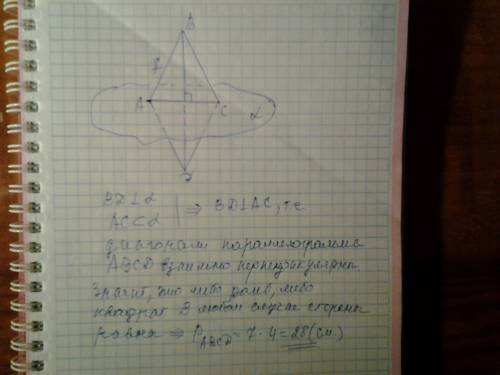 B
7
A
C
α
D
BD⊥α
AC⊂α | ⇒ BD⊥AC, т.е.
диагонали параллелограмма
ABCD взаимно перпендикулярны.
Значит, это либо ромб, либо
квадрат. В любом случае стороны
равны ⇒ P_ABCD = 7·4 = 28 (см.)